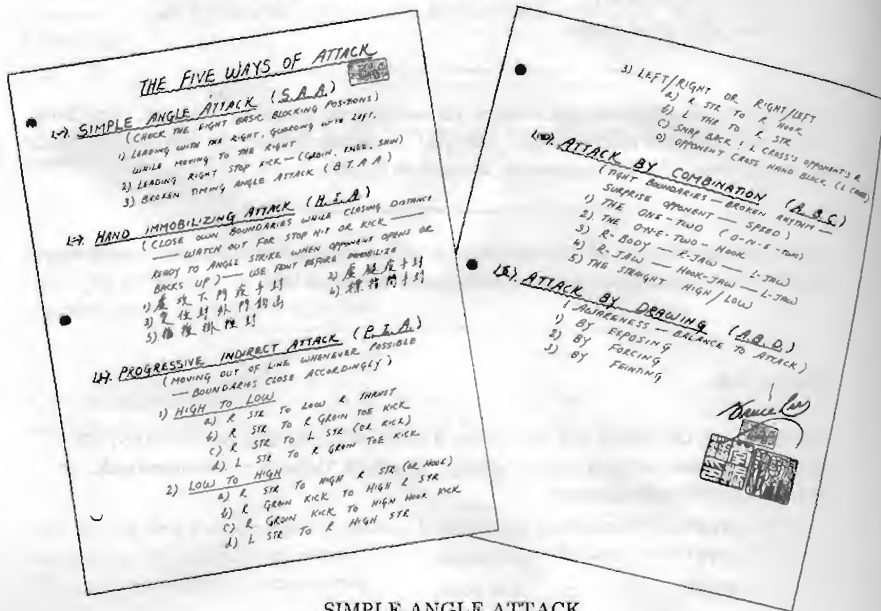 THE FIVE WAYS OF ATTACK
(一). SIMPLE ANGLE ATTACK (S.A.A.)
(CHECK THE EIGHT BASIC BLOCKING POSITIONS)
1) LEADING WITH THE RIGHT, GUARDING WITH LEFT,
WHILE MOVING TO THE RIGHT
2) LEADING RIGHT STOP KICK — (GROIN, KNEE, SHIN)
3) BROKEN TIMING ANGLE ATTACK (B.T.A.A)
(二). HAND IMMOBILIZING ATTACK (H.I.A)
(CLOSE OWN BOUNDARIES WHILE CLOSING DISTANCE
— WATCH OUT FOR STOP HIT OR KICK —
READY TO ANGLE STRIKE WHEN OPPONENT OPENS OR
BACKS UP) — USE FEINT BEFORE IMMOBILIZE
1) 下門 手封
2) 手封
3) 封外門
4) 標指 手封
5) 封
(三). PROGRESSIVE INDIRECT ATTACK (P.I.A.)
(MOVING OUT OF LINE WHENEVER POSSIBLE
— BOUNDARIES CLOSE ACCORDINGLY)
1) HIGH TO LOW
a) R STR TO LOW R THRUST
b) R STR TO R GROIN TOE KICK
c) R STR TO L STR (OR KICK)
d). L STR TO R GROIN TOE KICK
2) LOW TO HIGH
a) R STR TO HIGH R STR (OR HOOK)
b) R GROIN KICK TO HIGH R STR
c) R GROIN KICK TO HIGH HOOK KICK
d) L STR TO R HIGH STR
3) LEFT/RIGHT OR RIGHT/LEFT
a) R STR TO R HOOK
b) L THR TO R STR
c) SNAP BACK : L CROSS'S OPPONENT'S R
d) OPPONENT CROSS HAND BLOCK
(四). ATTACK BY COMBINATION (A.B.C)
(TIGHT BOUNDARIES — BROKEN RHYTHM —
SURPRISE OPPONENT — SPEED)
1) THE ONE-TWO (O-N-E-TWO)
2) THE ONE-TWO-HOOK
3) R-BODY — R-JAW — L-JAW
4) R-JAW — HOOK-JAW — L-JAW
5) THE STRAIGHT HIGH/LOW
(五). ATTACK BY DRAWING (A.B.D.)
(AWARENESS — BALANCE TO ATTACK)
1) BY EXPOSING
2) BY FORCING
3) BY FEINTING
Bruce Lee
SIMPLE ANGLE ATTACK